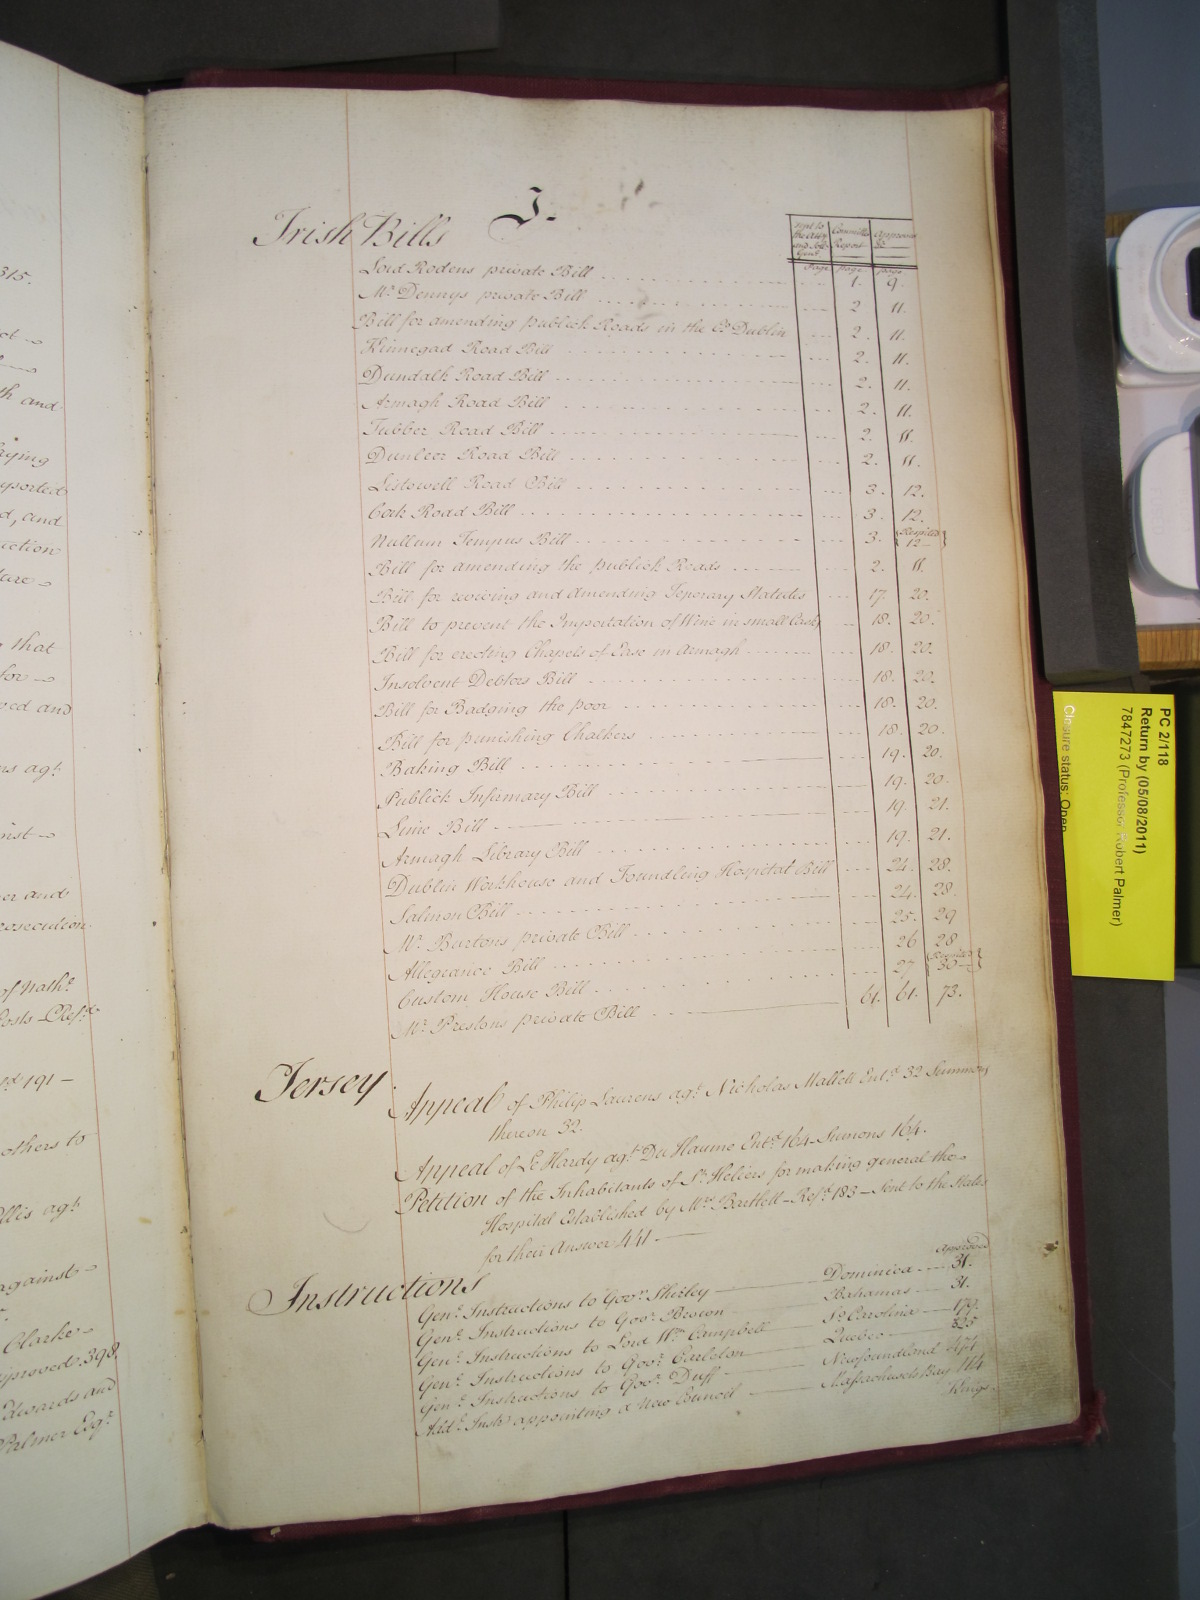 J.
Irish Bills
sent to the Atty and Soll. Genl. Committee Report Approved &c.
Page page page
Lord Rodens private Bill 1. 9.
Mr. Dennys private Bill 2 11.
Bill for amending publick Roads in the Co. Dublin 2. 11.
Kinnegad Road Bill 2. 11.
Dundalk Road Bill 2. 11.
Armagh Road Bill 2. 11.
Tubber Road Bill 2. 11.
Dunleer Road Bill 2. 11.
Listowell Road Bill 3. 12.
Cork Road Bill 3. 12.
Nullum Tempus Bill 3. Respited 12
Bill for amending the publick Roads 2. 11.
Bill for reviving and amending Temporary Statutes 17. 20.
Bill to prevent the Importation of Wine in small Casks 18. 20.
Bill for erecting Chapels of Ease in Armagh 18. 20.
Insolvent Debtors Bill 18. 20.
Bill for Badging the poor 18. 20.
Bill for punishing Chalkers 18. 20.
Baking Bill 19. 20.
Publick Infirmary Bill 19. 20.
Lime Bill 19. 21.
Armagh Library Bill 19. 21.
Dublin Workhouse and Foundling Hospital Bill 24. 28.
Salmon Bill 24. 28.
Mr. Burtons private Bill 25. 29
Allegiance Bill 26 28
Custom House Bill 27 Respited 30
Mr. Prestons private Bill 61. 61. 73.
Jersey
Appeal of Philip Laurens agt. Nicholas Mallett Entd. 32 Summons
thereon 32.
Appeal of Le Hardy agt. Du Haume Entd. 164 Sumons 164.
Petition of the Inhabitants of St. Heliers for making general the
Hospital Established by Mrs. Bartlett - Refd. 183 - Sent to the States
for their Answer 441.
Instructions
Approved
Genl. Instructions to Govr. Shirley Dominica 31.
Genl. Instructions to Govr. Brown Bahamas 31.
Genl. Instructions to Lord Wm. Campbell So. Carolina 179.
Genl. Instructions to Govr. Carleton Quebec 525
Genl. Instructions to Govr. Duff Newfoundland 474
Addl. Instr. appointing a New Council Massachusets Bay 164
Kings
315.
th and
that
ved and
agt.
er and
of Nathl.
191 -
others to
agt.
against
Clarke
approved 398.
Edwards and
Palmer Esqr.
PC 2/118
Return by (05/08/2011)
7847273 (Professor Robert Palmer)
Closure status: Open